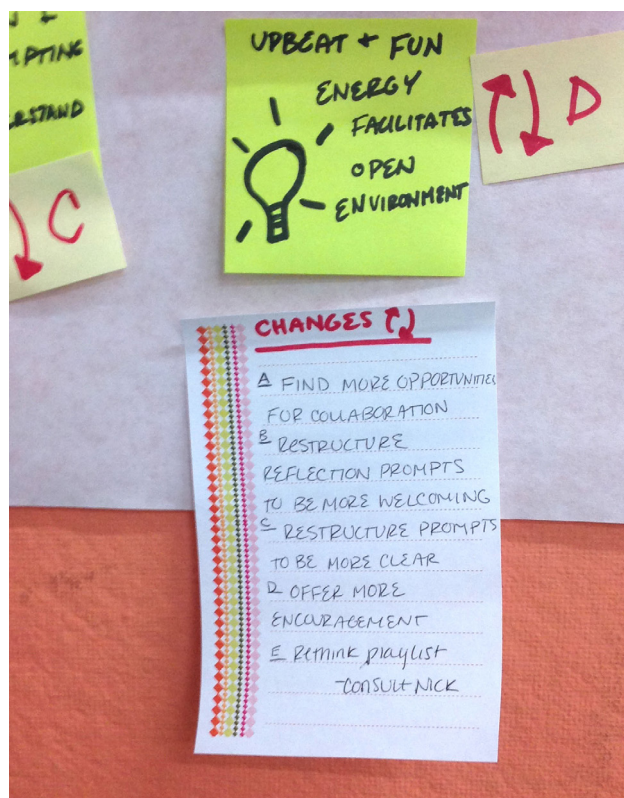 UPBEAT + FUN
ENERGY
FACILITATES
OPEN
ENVIRONMENT
D
C
CHANGES
A FIND MORE OPPORTUNITIES
FOR COLLABORATION
B RESTRUCTURE
REFLECTION PROMPTS
TO BE MORE WELCOMING
C RESTRUCTURE PROMPTS
TO BE MORE CLEAR
D OFFER MORE
ENCOURAGEMENT
E Rethink playlist
-consult NICK